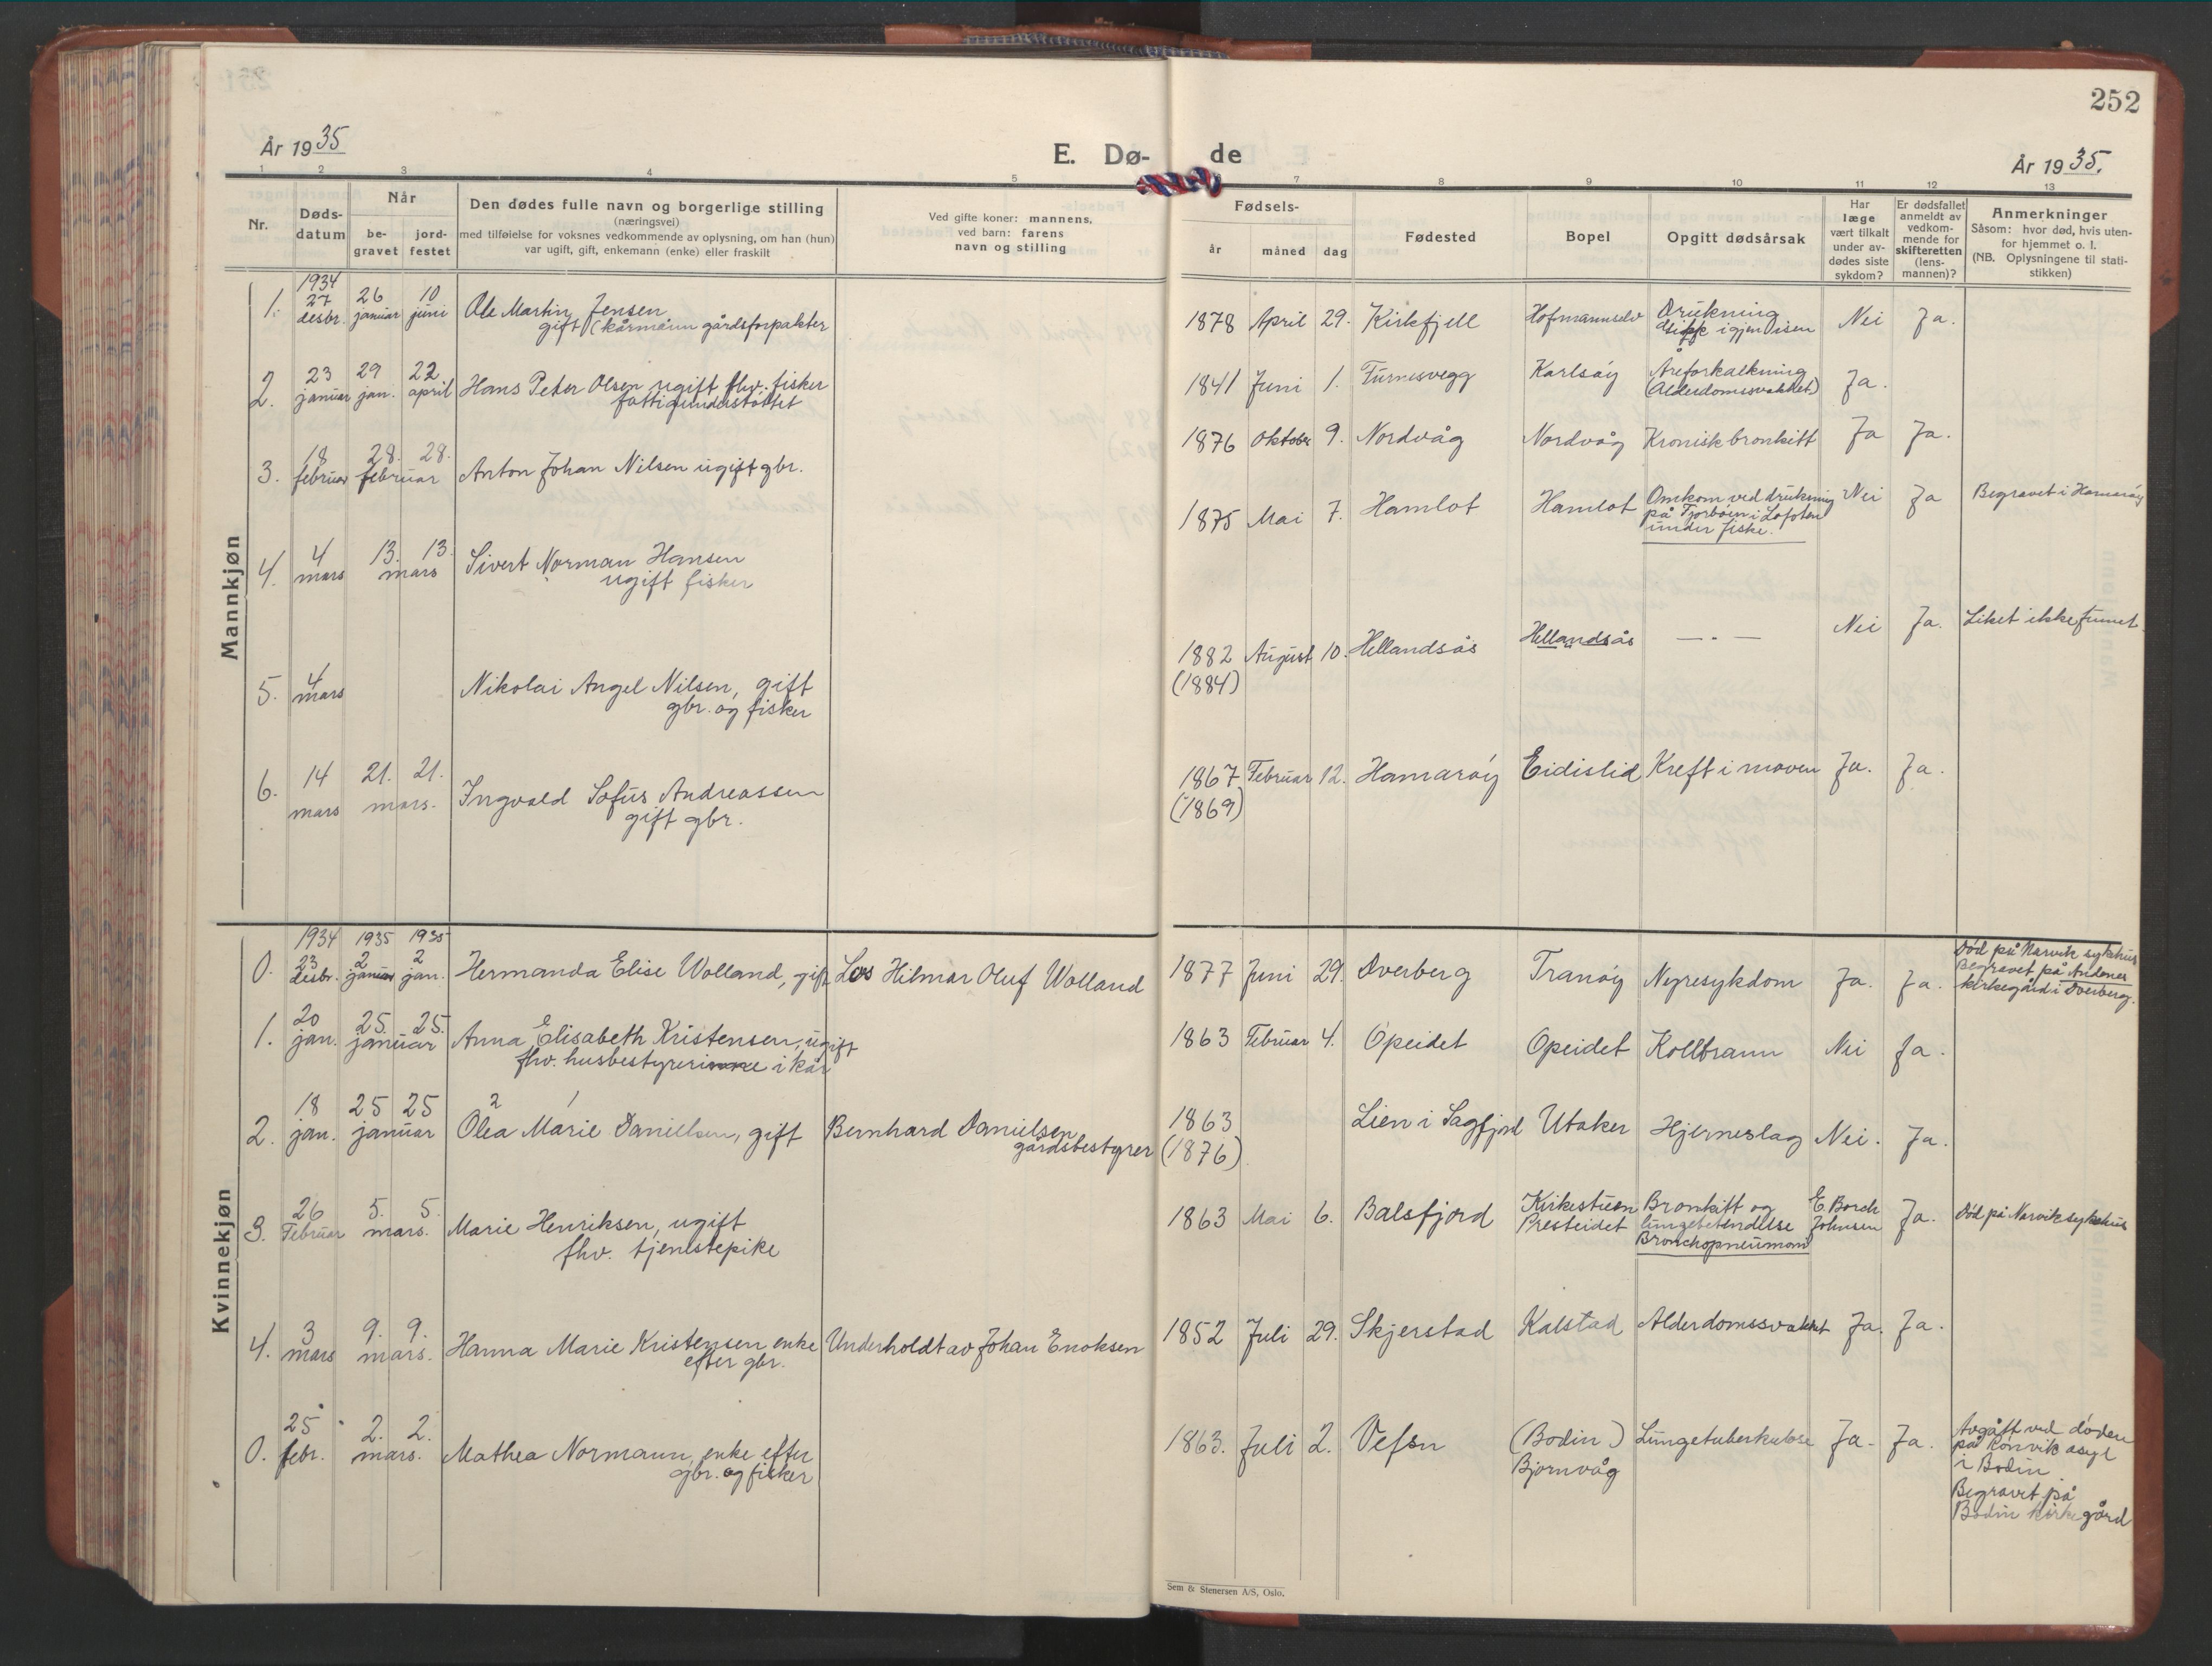 252
År 1935
E. Dø- de
År 1935.
1 2 3 4 5 7 8 9 10 11 12 13
Nr.
Døds-
datum
Når
be-
gravet
jord-
festet
Den dødes fulle navn og borgerlige stilling
(næringsvei)
med tilføielse for voksnes vedkommende av oplysning, om han (hun)
var ugift, gift, enkemann (enke) eller fraskilt
Ved gifte koner: mannens,
ved barn: farens
navn og stilling
Fødsels-
år måned dag
Fødested
Bopel
Opgitt dødsårsak
Har
læge
vært tilkalt
under av-
dødes siste
sykdom?
Er dødsfallet
anmeldt av
vedkom-
mende for
skifteretten
(lens-
mannen)?
Anmerkninger
Såsom: hvor død, hvis uten-
for hjemmet o. l.
(NB. Oplysningene til stati-
stikken)
Mannkjøn
1934
1. 27 desbr. 26 januar 10 juni Ole Martin Jensen
gift (kårmann gårdsforpakter
1878 April 29. Kirkfjell Drukning
igjen isen Nei Ja.
2. 23 januar 29 jan. 22 april Hans Peter Olsen ugift fhv. fisker
fattigunderstøttet
1841 Juni 1. Karlsøy Åreforkalkning
(Alderdomssvakhet) Ja.
3. 18 februar 28. 28. februar Anton Johan Nilsen ugift gbr.
1876 Oktober 9. Nordvåg Nordvåg Kronisk bronkitt Ja Ja.
4. 4 mars 13. 13. mars Sivert Norman Hansen
ugift fisker
1875 Mai 7. Hamlot Hamlot Omkom ved drukning
på i Lofoten
under fiske. Nei Ja Begravet i Hamarøy
5. 4 mars Nikolai Angel Nilsen, gift
gbr. og fisker
1882 August 10. Hellandsås Hellandsås — „ — Nei Ja. Liket ikke funnet.
(1884)
6. 14 mars 21. 21. mars. Ingvald Sofus Andreassen
gift gbr.
1867 Februar 12. Hamarøy Eidislid Kreft i maven Ja. Ja.
(1869)
Kvinnekjøn
1934 1935 1935
0. 23 desbr. 2 januar 2 jan. Hermanda Elise Wolland, gift Los Hilmar Oluf Wolland
1877 Juni 29. Dverberg Tranøy Nyresykdom Ja. Ja. Død på Narvik sykehus
Begravet på Andenes
kirkegård i Dverberg.
1. 20 jan. 25. 25. januar Anna Elisabeth Kristensen, ugift
fhv. husbestyrerinne i kår
1863 Februar 4. Opeidet Opeidet Kollbrann Nei Ja.
2. 18 jan. 25 25 januar 2 1
Olea Marie Danielsen, gift Bernhard Danielsen
gårdsbestyrer
1863 Lien i Sagfjord Utaker Hjerneslag Nei. Ja.
(1876).
3. 26 Februar 5. 5. mars. Marie Henriksen, ugift
fhv. tjenestepike
1863 Mai 6. Balsfjord Kirkestuen
Presteidet Bronkitt og
lungebetendelse
Bronchopneumoni E Borch
Johnsen Ja. Død på Narvik sykehus
4. 3 mars 9. 9. mars. Hanna Marie Kristensen enke
efter gbr. Underholdt av Johan Enoksen
1852 Juli 29. Skjerstad Kalstad Alderdomssvakhet Ja. Ja.
0. 25 febr. 2. 2. mars. Mathea Normann, enke efter
gbr. og fisker
1863. Juli 2. Vefsn (Bodin)
Bjørnvåg Lungetuberkulose Ja. Ja. Avgått ved døden
på Rønvik asyl
i Bodin
Begravet på
Bodin kirkegård
Sem & Stenersen A/S, Oslo.